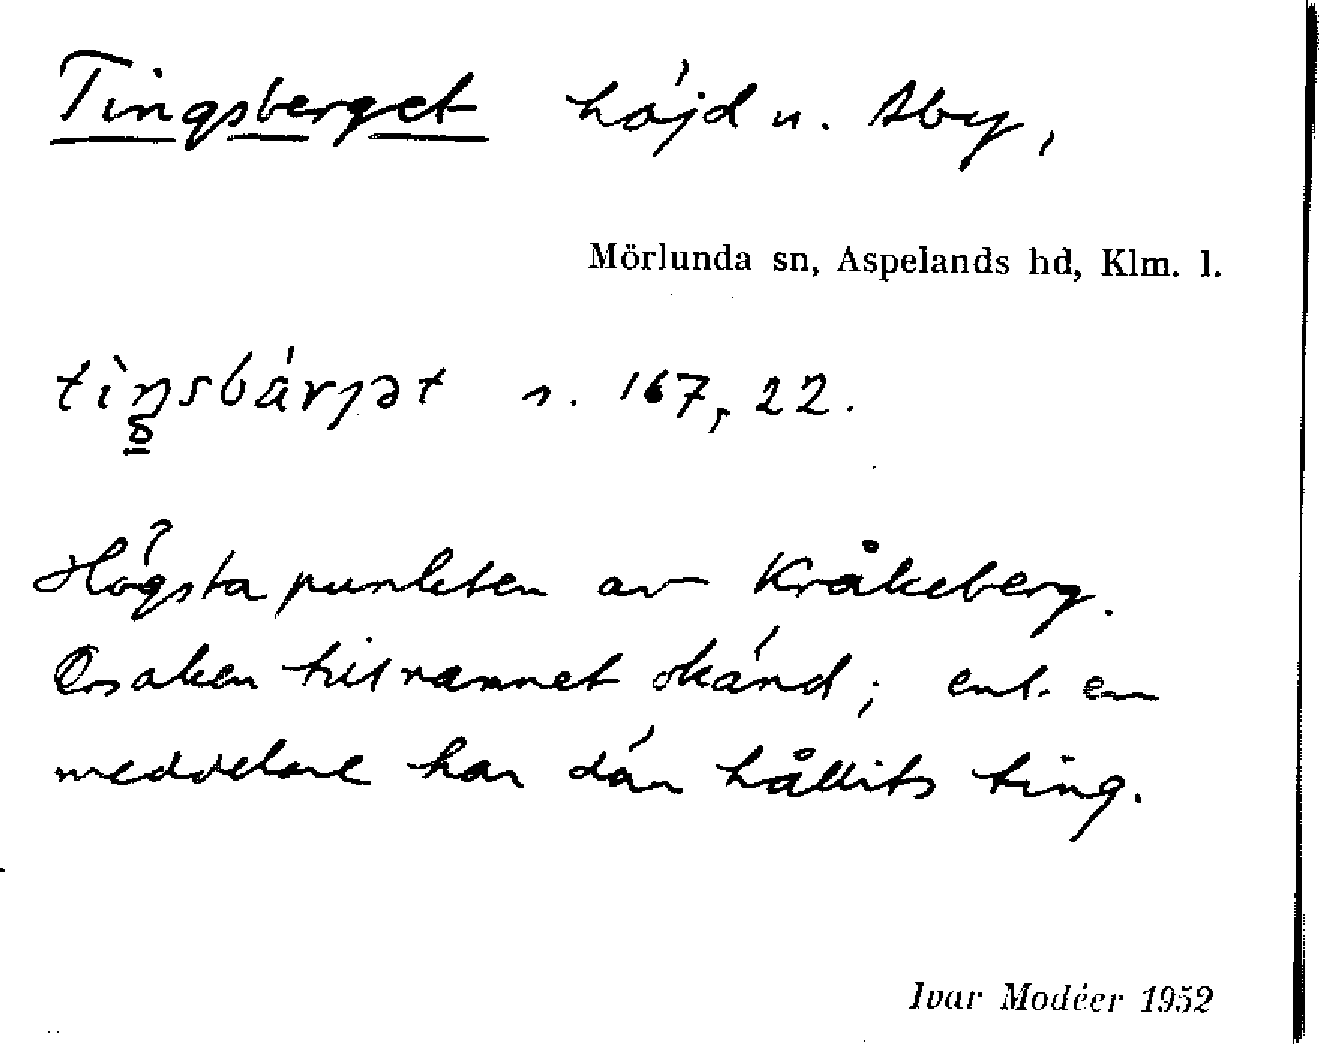 Tingsberget höjd u. Åby,
Mörlunda sn, Aspelands hd, Klm. l.
s. 167, 22.
Högsta punkten av Kråkeberg.
Orsaken till namnet okänd; enl. en
meddelare har där hållits ting.
Ivar Modéer 1952